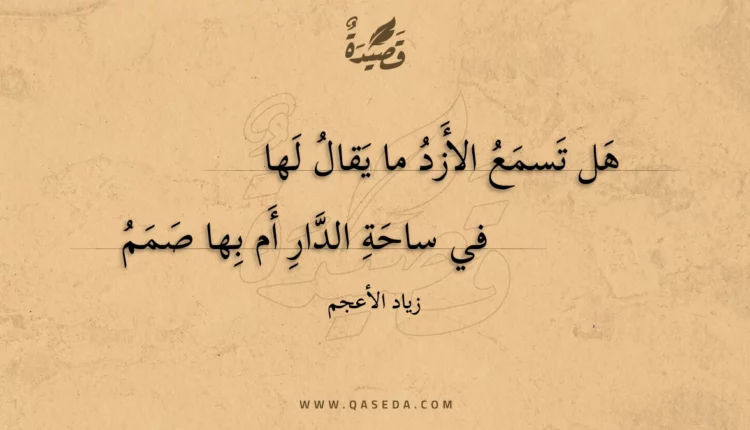 قَصِيدَةٌ
هَل تَسمَعُ الأَزدُ ما يَقالُ لَها
في ساحَةِ الدَّارِ أَم بِها صَمَمُ
زياد الأعجم
WWW.QASEDA.COM